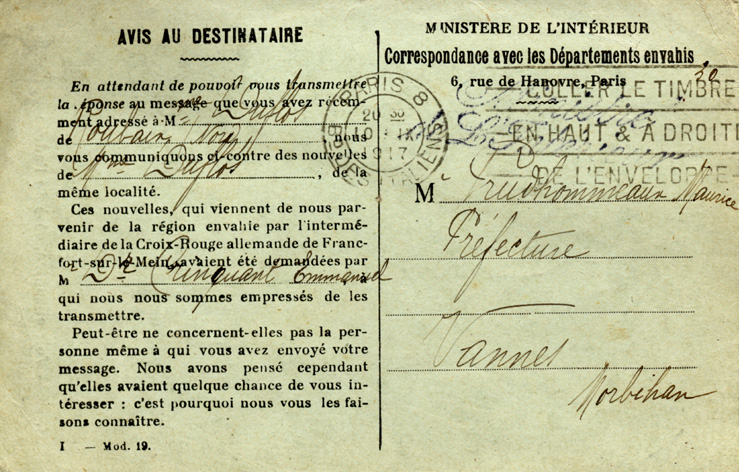 AVIS AU DESTINATAIRE
En attendant de pouvoir vous transmettre
la réponse au message que vous avez récem-
ment adressé à Mme Duflos
de Roubaix Nord nous
vous communiquons ci-contre des nouvelles
de Mme Duflos, de la
même localité.
Ces nouvelles, qui viennent de nous par-
venir de la région envahie par l'intermé-
diaire de la Croix-Rouge allemande de Franc-
fort-sur-le-Mein, avaient été demandées par
M Dr Crinquant Emmanuel
qui nous nous sommes empressés de les
transmettre.
Peut-être ne concernent-elles pas la per-
sonne même à qui vous avez envoyé votre
message. Nous avons pensé cependant
qu'elles avaient quelque chance de vous in-
téresser : c'est pourquoi nous vous les fai-
sons connaître.
I — Mod. 19.
MINISTERE DE L'INTÉRIEUR
Correspondance avec les Départements envahis
6, rue de Hanovre, Paris
PARIS 8
1917
COLLER LE TIMBRE
EN HAUT & A DROITE
DE L'ENVELOPPE
M Prudhommeaux Maurice
Préfecture
Vannes
Morbihan